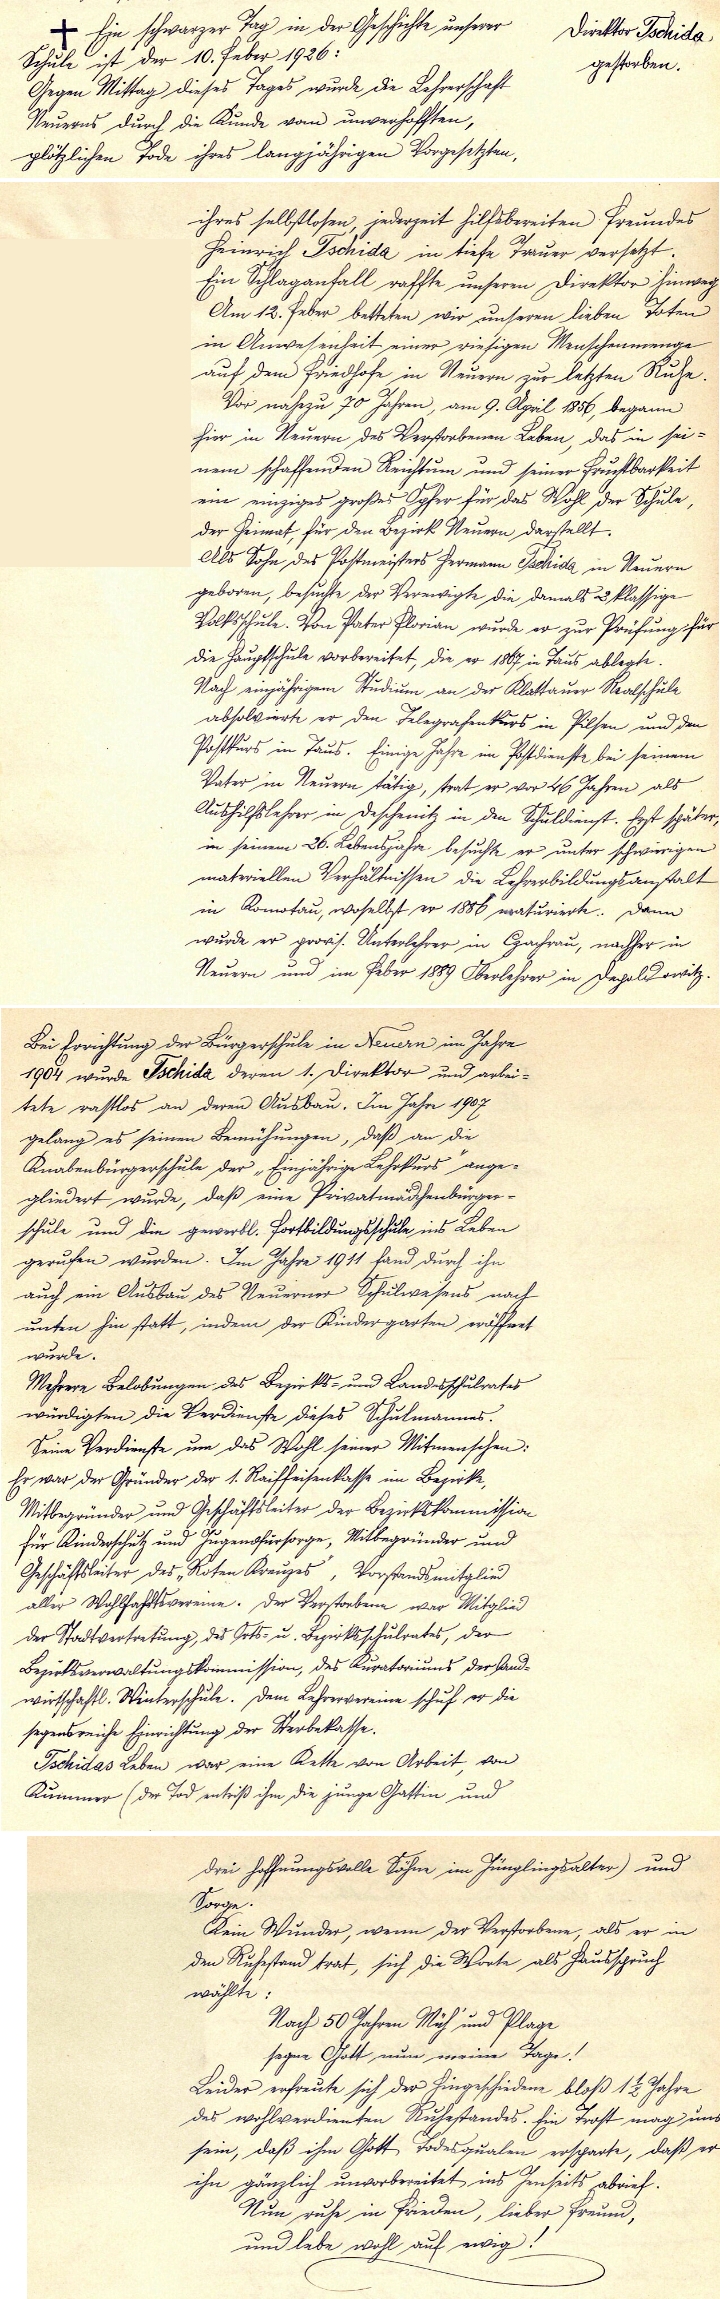 ✝ Ein schwarzer Tag in der Geschichte unserer
Schule ist der 10. Feber 1926:
Direktor Tschida
gestorben.
Gegen Mittag dieses Tages wurde die Lehrerschaft
Neuerns durch die Kunde vom unverhofften,
plötzlichen Tode ihres langjährigen Vorgesetzten,
ihres selbstlosen, jederzeit hilfsbereiten Freundes
Heinrich Tschida in tiefe Trauer versetzt.
Ein Schlaganfall raffte unseren Direktor hinweg
Am 12. Feber betteten wir unseren lieben Toten
in Anwesenheit einer riesigen Menschenmenge
auf dem Friedhofe in Neuern zur letzten Ruhe.
Vor nahezu 70 Jahren, am 9. April 1856, begann
hier in Neuern des Verstorbenen Leben, das in sei=
nem schaffenden Reichtum und seiner Fruchtbarkeit
ein einziges großes Opfer für das Wohl der Schule,
der Heimat, für den Bezirk Neuern darstellt.
Als Sohn des Postmeisters Hermann Tschida in Neuern
geboren, besuchte der Verewigte die damals 2 klassige
Volksschule. Von Pater Florian wurde er zur Prüfung für
die Hauptschule vorbereitet, die er 1867 in Taus ablegte.
Nach einjährigem Studium an der Klattauer Realschule
absolvierte er den Telegrafenkurs in Pilsen und den
Postkurs in Taus. Einige Jahre im Postdienste bei seinem
Vater in Neuern tätig, trat er vor 46 Jahren als
Aushilfslehrer in Deschenitz in den Schuldienst. Erst später,
in seinem 26. Lebensjahre besuchte er unter schwierigen
materiellen Verhältnissen die Lehrerbildungsanstalt
in Komotau, woselbst er 1886 maturierte. Dann
wurde er provis. Unterlehrer in Czachrau, nachher in
Neuern und im Feber 1889 Oberlehrer in Depoldowitz.
Bei Errichtung der Bürgerschule in Neuern im Jahre
1904 wurde Tschida deren 1. Direktor und arbei=
tete rastlos an deren Ausbau. Im Jahre 1907
gelang es seinen Bemühungen, daß an die
Knabenbürgerschule der „Einjährige Lehrkurs" ange=
gliedert wurde, daß eine Privatmädchenbürger=
schule und die gewerbl. Fortbildungsschule ins Leben
gerufen wurden. Im Jahre 1911 fand durch ihn
auch ein Ausbau des Neuerner Schulwesens nach
unten hin statt, indem der Kindergarten eröffnet
wurde.
Mehrere Belobungen des Bezirks= und Landesschulrates
würdigten die Verdienste dieses Schulmannes.
Seine Verdienste um das Wohl seiner Mitmenschen:
Er war der Gründer der 1. Raiffeisenkasse im Bezirke,
Mitbegründer und Geschäftsleiter der Bezirkskommission
für Kinderschutz und Jugendfürsorge, Mitbegründer und
Geschäftsleiter des „Roten Kreuzes", Vorstandsmitglied
aller Wohlfahrtsvereine. Der Verstorbene war Mitglied
der Stadtvertretung, des Orts= u. Bezirksschulrates, der
Bezirksverwaltungskommission, des Kuratoriums der land=
wirtschaftl. Winterschule. Dem Lehrervereine schuf er die
segensreiche Einrichtung der Sterbekasse.
Tschidas Leben war eine Kette von Arbeit, von
Kummer (der Tod entriß ihm die junge Gattin und
drei hoffnungsvolle Söhne im Jünglingsalter) und
Sorge.
Kein Wunder, wenn der Verstorbene, als er in
den Ruhestand trat, sich die Worte als Hausspruch
wählte:
Nach 50 Jahren Müh' und Plage
segne Gott nun meine Tage!
Leider erfreute sich der Hingeschiedene bloß 1½ Jahre
des wohlverdienten Ruhestandes. Ein Trost mag uns
sein, daß ihm Gott Todesqualen ersparte, daß er
ihn gänzlich unvorbereitet ins Jenseits abrief.
Nun ruhe in Frieden, lieber Freund,
und lebe wohl auf ewig!